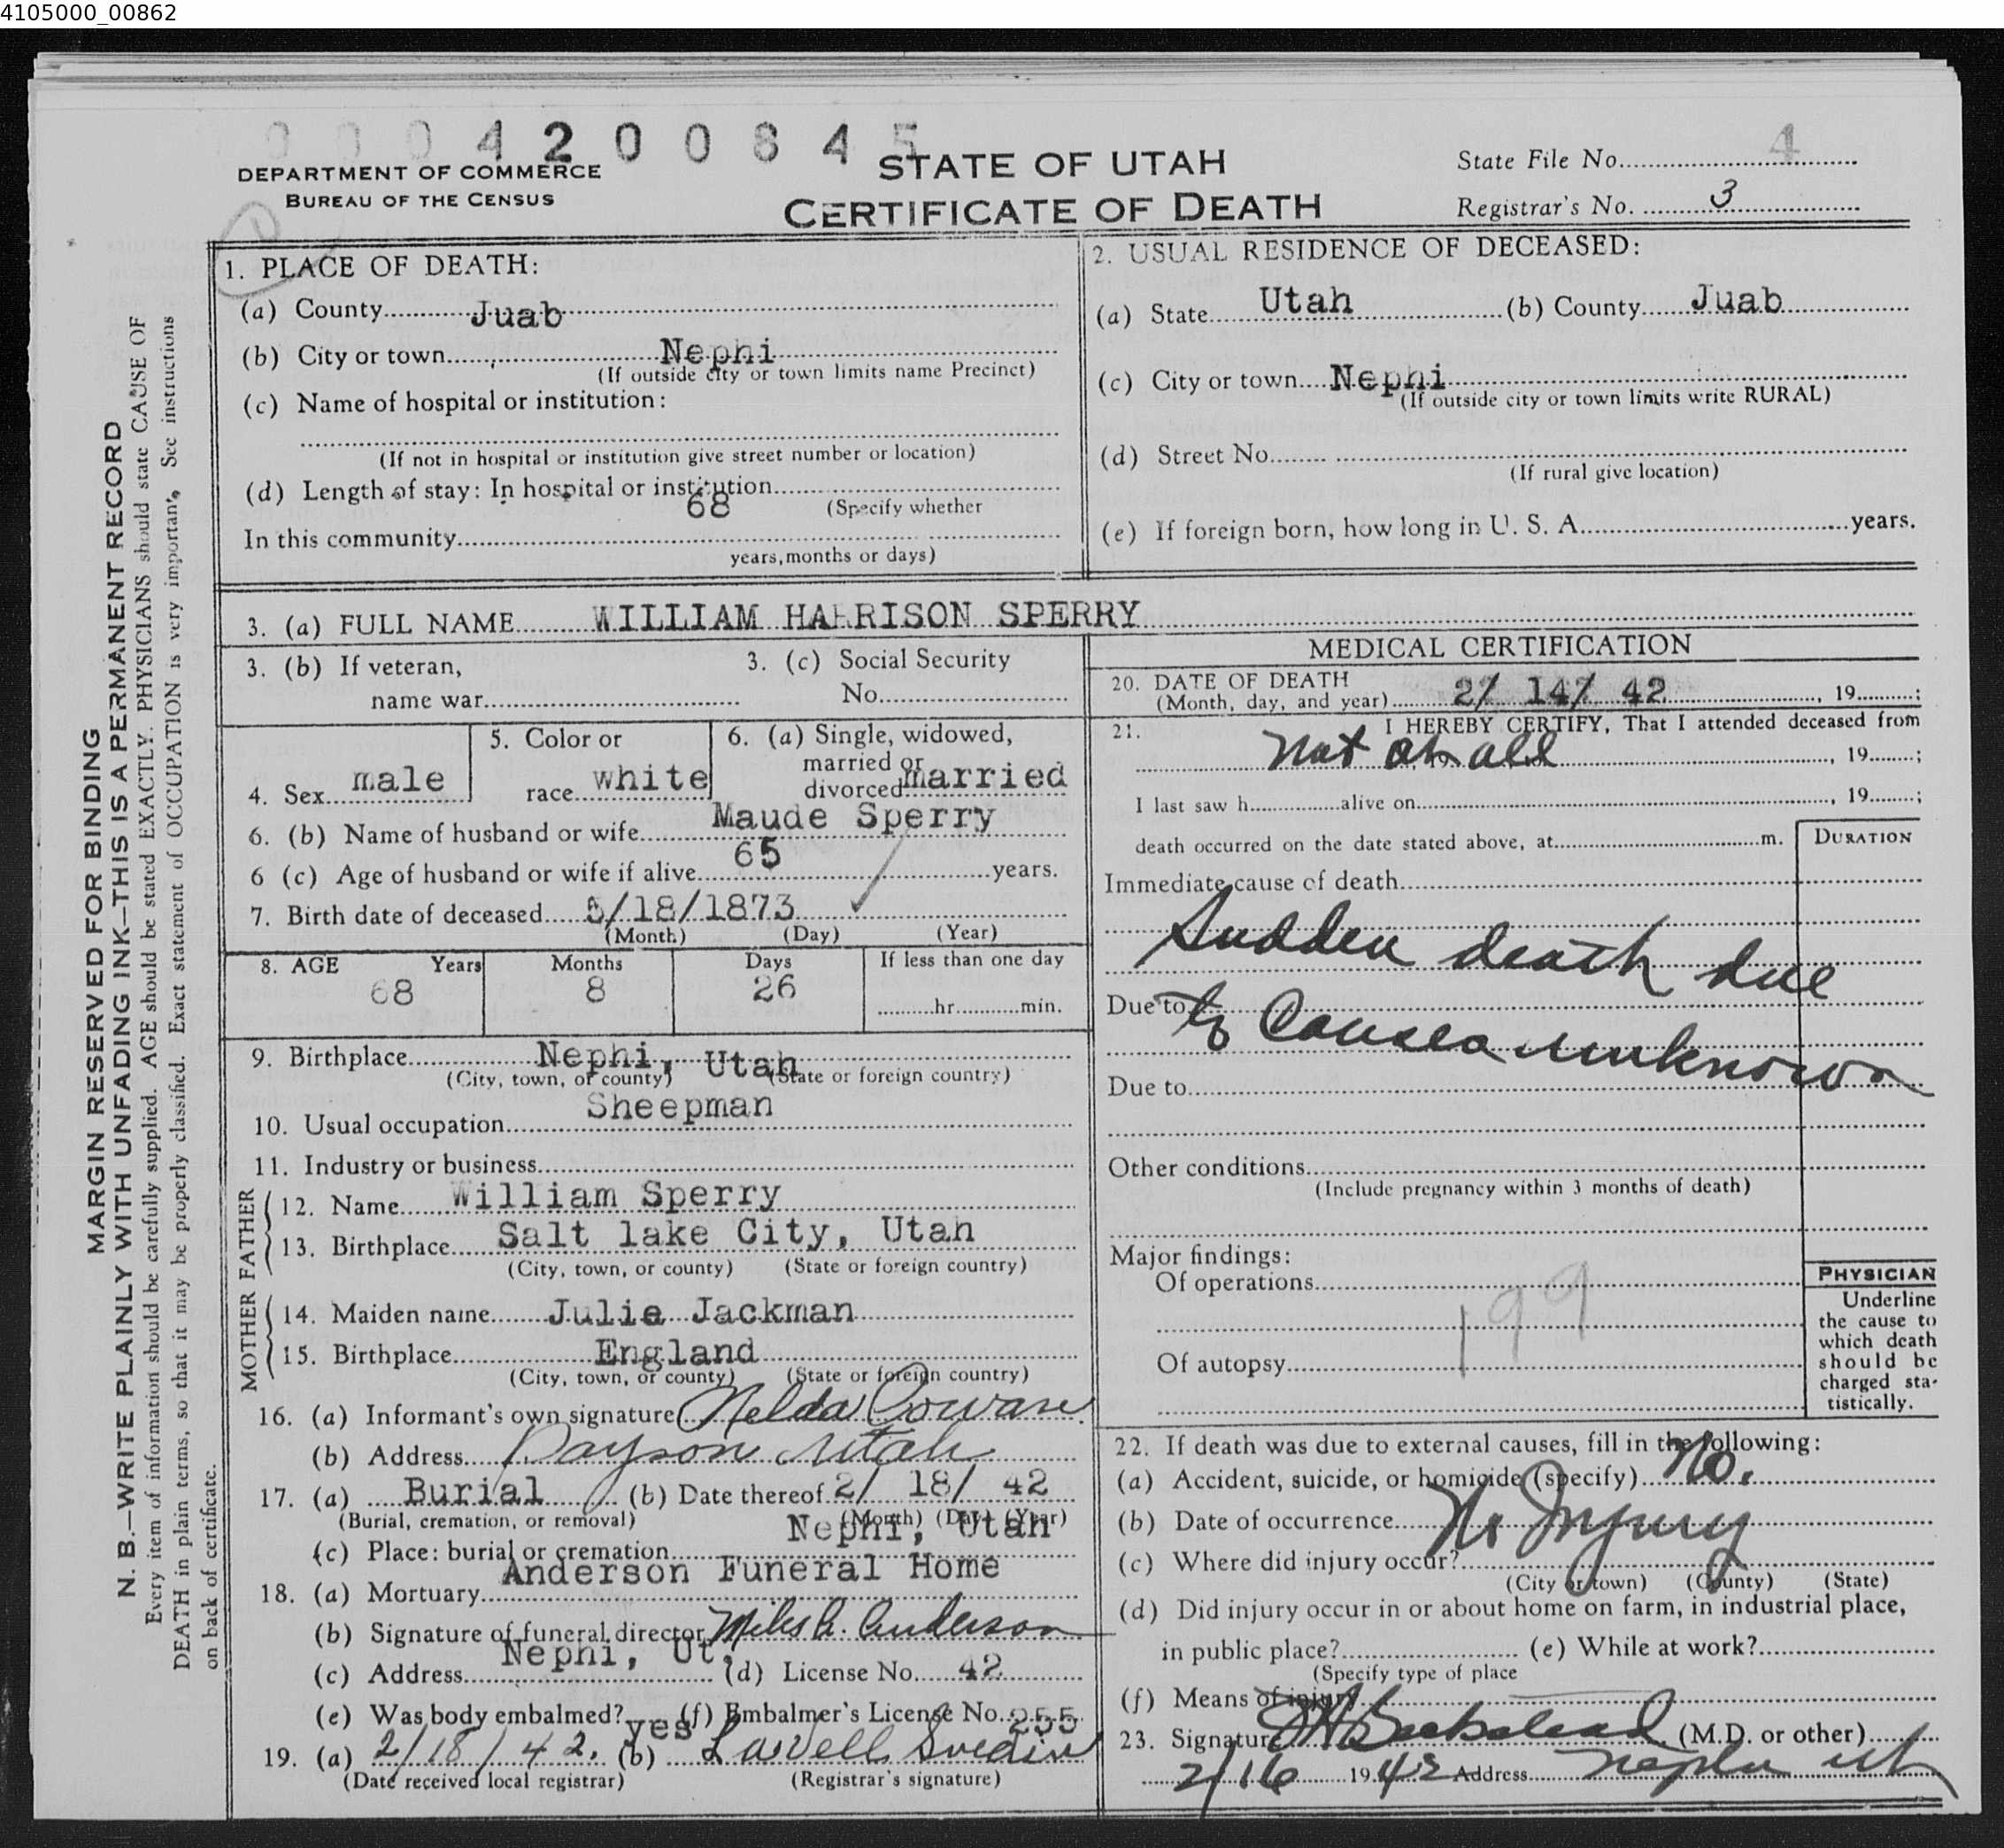 4105000_00862
0 0 0 4 2 0 0 8 4 5
DEPARTMENT OF COMMERCE
BUREAU OF THE CENSUS
STATE OF UTAH
CERTIFICATE OF DEATH
State File No. 4
Registrar's No. 3
1
MARGIN RESERVED FOR BINDING
N. B.—WRITE PLAINLY WITH UNFADING INK—THIS IS A PERMANENT RECORD
Every item of information should be carefully supplied. AGE should be stated EXACTLY. PHYSICIANS should state CAUSE OF
DEATH in plain terms, so that it may be properly classified. Exact statement of OCCUPATION is very important. See instructions
on back of certificate.
1. PLACE OF DEATH:
(a) County Juab
(b) City or town Nephi
(If outside city or town limits name Precinct)
(c) Name of hospital or institution:
(If not in hospital or institution give street number or location)
(d) Length of stay: In hospital or institution
68 (Specify whether
In this community
years, months or days)
2. USUAL RESIDENCE OF DECEASED:
(a) State Utah (b) County Juab
(c) City or town Nephi
(If outside city or town limits write RURAL)
(d) Street No.
(If rural give location)
(e) If foreign born, how long in U. S. A. years.
3. (a) FULL NAME WILLIAM HARRISON SPERRY
3. (b) If veteran,
name war
3. (c) Social Security
No.
4. Sex male
5. Color or
race white
6. (a) Single, widowed,
married or
divorced married
6. (b) Name of husband or wife Maude Sperry
6 (c) Age of husband or wife if alive 65 years.
7. Birth date of deceased 5/18/1873
(Month) (Day) (Year)
8. AGE Years Months Days If less than one day
68 8 26 hr. min.
9. Birthplace Nephi, Utah
(City, town, or county) (State or foreign country)
10. Usual occupation Sheepman
11. Industry or business
FATHER
12. Name William Sperry
13. Birthplace Salt lake City, Utah
(City, town, or county) (State or foreign country)
MOTHER
14. Maiden name Julia Jackman
15. Birthplace England
(City, town, or county) (State or foreign country)
16. (a) Informant's own signature Nelda Cowan
(b) Address Payson Utah
17. (a) Burial (b) Date thereof 2/ 18/ 42
(Burial, cremation, or removal) (Month) (Day) (Year)
(c) Place: burial or cremation Nephi, Utah
18. (a) Mortuary Anderson Funeral Home
(b) Signature of funeral director Miles A. Anderson
(c) Address Nephi, Ut. (d) License No. 42
(e) Was body embalmed? yes (f) Embalmer's License No. 255
19. (a) 2/18/42. (b) LaVell Svedin
(Date received local registrar) (Registrar's signature)
MEDICAL CERTIFICATION
20. DATE OF DEATH
(Month, day, and year) 2/ 14/ 42, 19 ;
21. I HEREBY CERTIFY, That I attended deceased from
Not at all, 19 ;
I last saw h alive on , 19 ;
death occurred on the date stated above, at m.
DURATION
Immediate cause of death
Sudden death due
Due to to Causes unknown
Due to
Other conditions
(Include pregnancy within 3 months of death)
Major findings:
Of operations
199
Of autopsy
PHYSICIAN
Underline
the cause to
which death
should be
charged sta-
tistically.
22. If death was due to external causes, fill in the following:
(a) Accident, suicide, or homicide (specify) No.
(b) Date of occurrence No Injury
(c) Where did injury occur?
(City or town) (County) (State)
(d) Did injury occur in or about home on farm, in industrial place,
in public place? (e) While at work?
(Specify type of place
(f) Means of injury
23. Signature Beckstead (M.D. or other)
2/16 1942 Address Nephi Ut